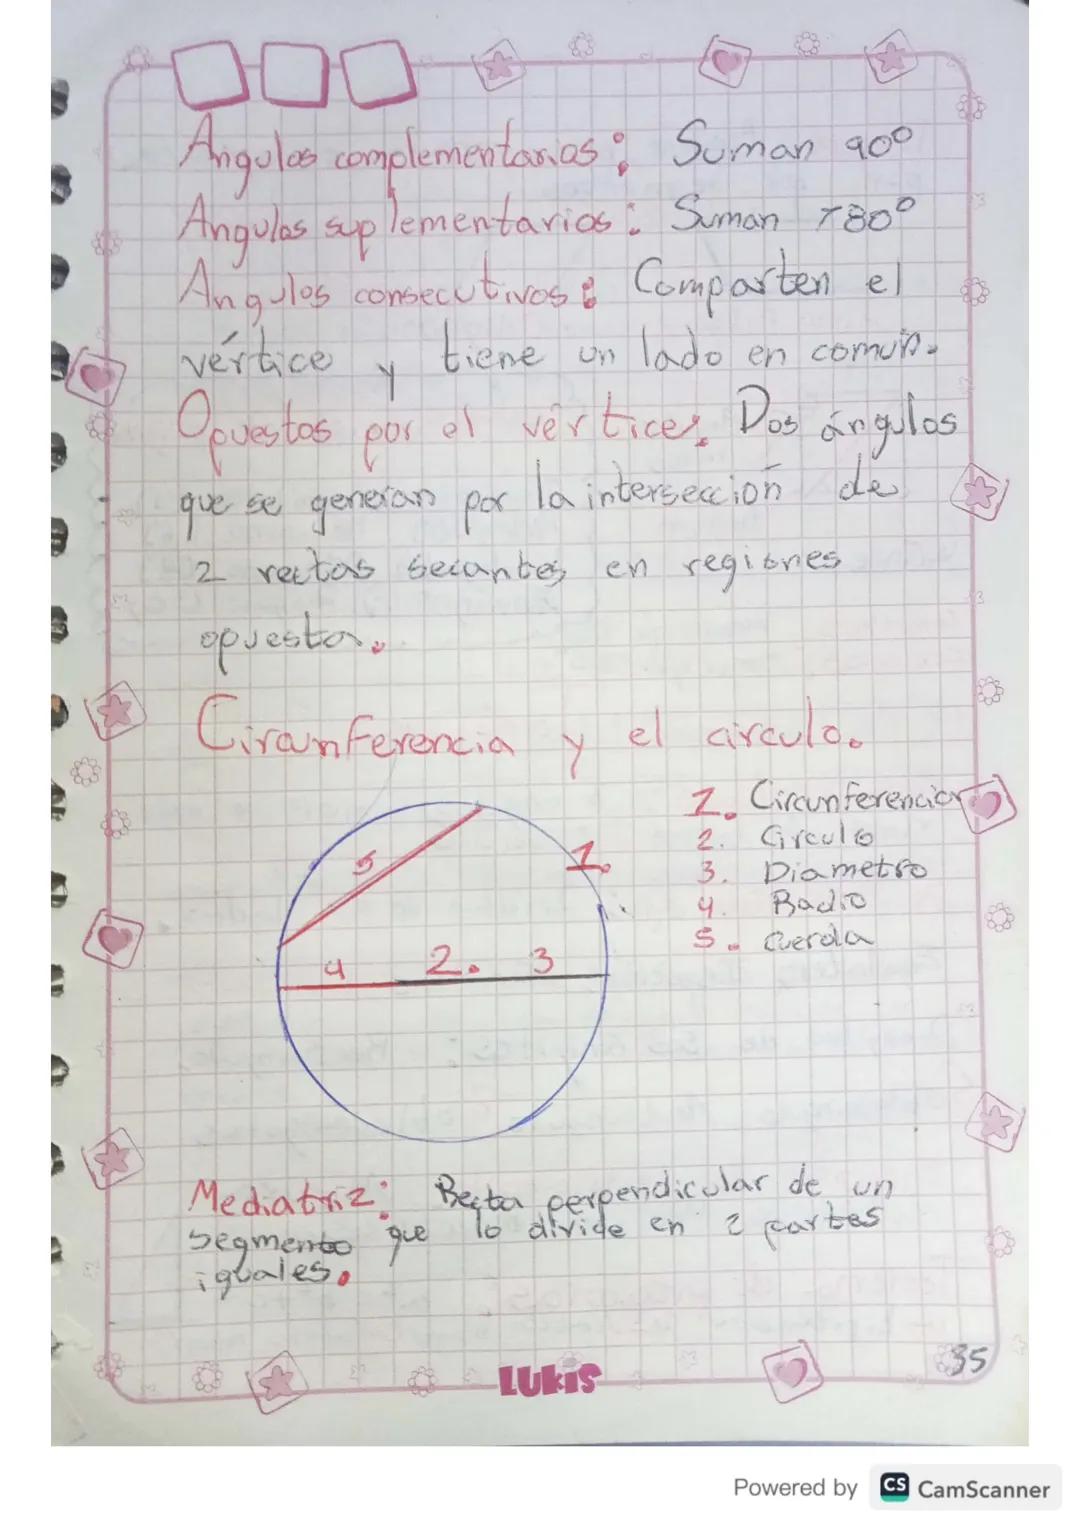 Angulos complementarios: Suman 90°
Angulos suplementarios: Suman 180°
Angulos consecutivos: Comparten el
vértice y tiene un lado en común.
Opuestos por el vértice. Dos ángulos
que se generan por la intersección de
2 rectas secantes en regiones
opuesta.
Circunferencia y el circulo.
1. Circunferencia
2. Circulo
3. Diametro
4. Radio
5. Cuerda
5
1.
4 2. 3
Mediatriz: Recta perpendicular de un
segmento que lo divide en 2 partes
iguales.
35
LUKIS
Powered by CS CamScanner